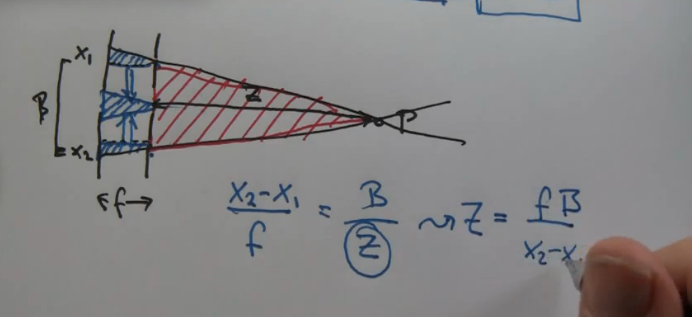 x₁
Z
B
P
x₂
f
x₂-x₁/f = B/Z ⇝ Z = fB/x₂-x